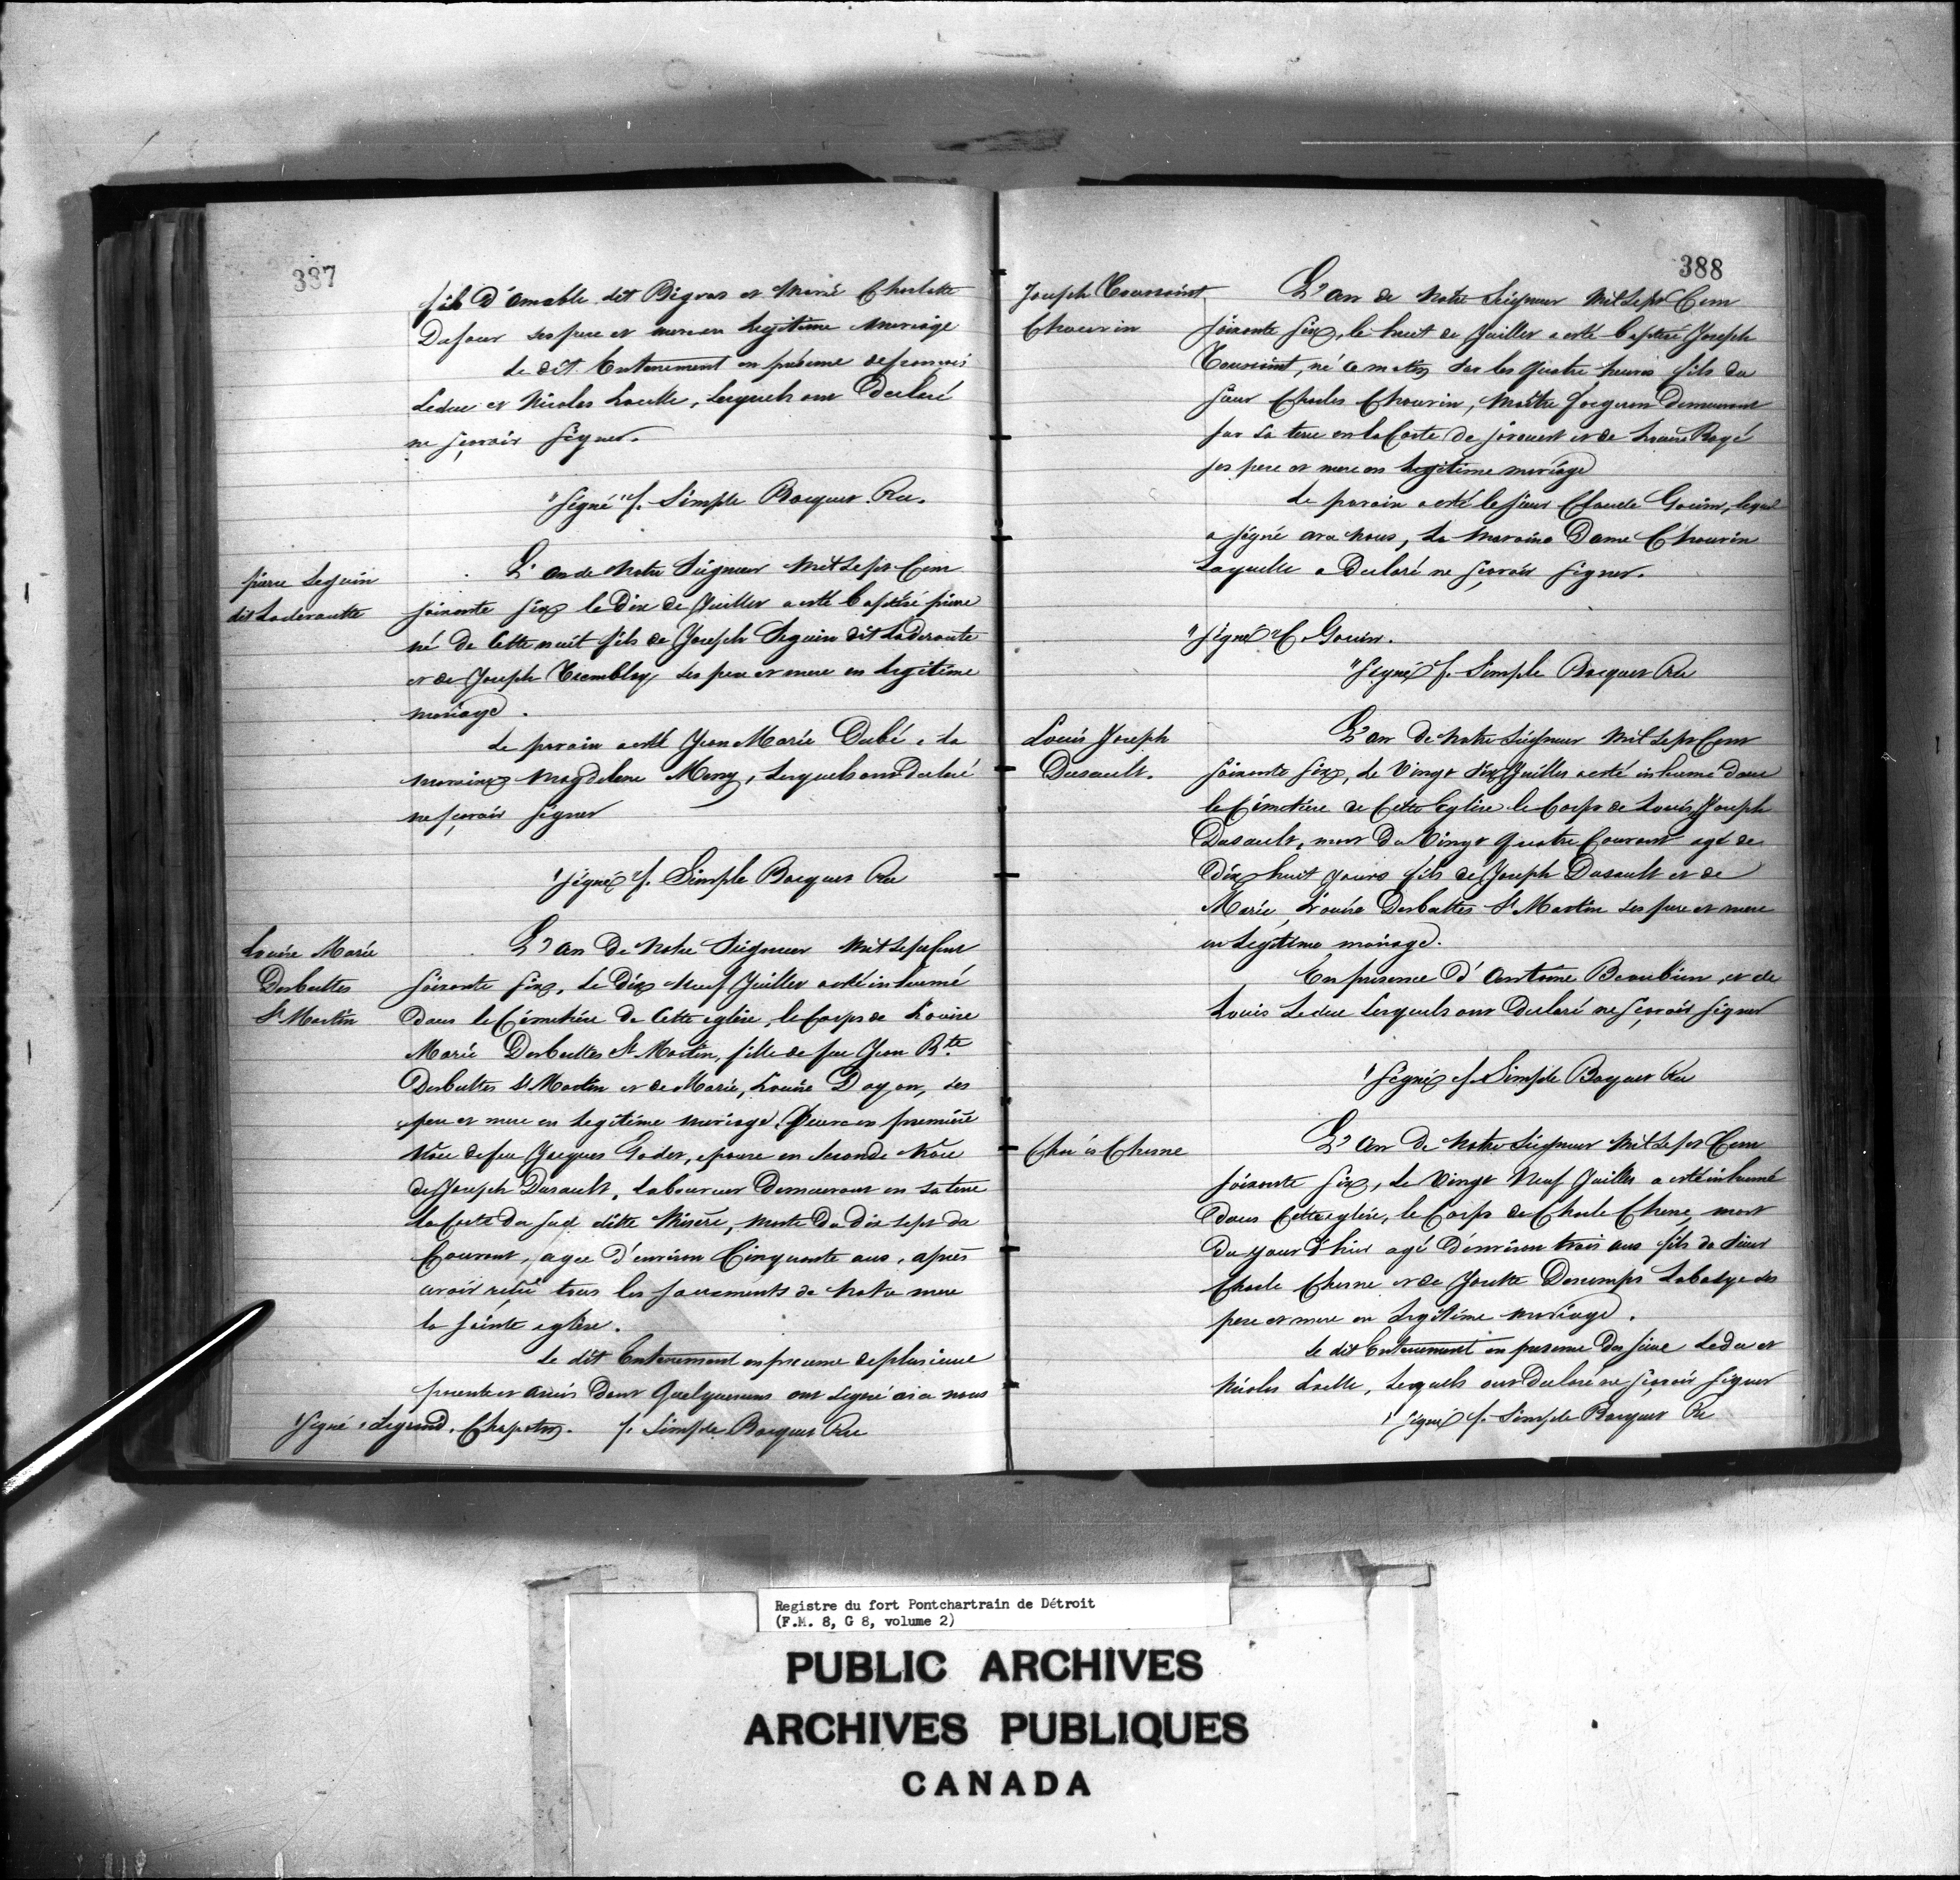 387
fils D'amable dit Bigras et Marie Charlotte
Dufour ses pere et mere en Legitime Mariage
Le dit Enterrement en présence de francois
Leduc et Nicolas Loselle, Lesquels ont Declaré
ne sçavoir signer.
"signé" f. Simple Bocquet Rec.
pierre Seguin
dit Laderoutte
L'an de Notre Seigneur Mil Sept Cent
soixante six le Dix de Juillet a esté baptisé pierre
né de Cette nuit fils de Joseph Seguin dit Laderoute
et de Joseph Tremblay ses pere et mere en Legitime
mariage.
Le parain a esté Jean Marie Dubé, la
maraine Magdelene Meny, Lesquels ont Declaré
ne sçavoir signer
"signé" f. Simple Bocquet Rec
Louise Marie
Desbuttes
St Martin
L'an De Notre Seigneur Mil Sept Cent
soixante six, Le Dix Neuf Juillet a esté inhumé
dans le Cimetiere De Cette eglise, le Corps de Louise
Marie Desbuttes St Martin, fille de feu Jean Bte
Desbuttes St Martin et de Marie, Louise Dayon, ses
pere et mere en Legitime mariage, Veuve en premiere
Nôce de feu Jacques Godet, epouse en Seconde Nôce
de Joseph Dusault, Laboureur Demeurant en sa terre
la Coste du sud ditte Misere, morte Du dix sept du
Courant, agee D'environ Cinquante ans, après
avoir reçu tous les sacrements de Notre mere
la sainte eglise.
Le dit Enterrement en presence de plusieurs
parents et amis Dont Quelquesuns ont Signé avec nous
"signé" Legrand, Chapoton. f. Simple Bocquet Rec
388
Joseph Toussaint
Chauvin
L'an de Notre Seigneur Mil Sept Cent
soixante six, le huit de Juillet a esté baptisé Joseph
Toussaint, né ce matin sur les quatre heures fils du
sieur Charles Chauvin, Maitre forgeron Demeurant
sur sa terre en la Coste de surouest et de Louise Ragé
ses pere et mere en Legitime mariage
Le parain a esté le sieur Claude Gouin, lequel
a signé avec Nous, La Maraine Dame Chauvin
Laquelle a Declaré ne sçavoir signer.
"signé" C. Gouin.
"signé" f. Simple Bocquet Rec
Louis Joseph
Dusault.
L'an De Notre Seigneur Mil Sept Cent
soixante six, Le Vingt six Juillet a esté inhumé dans
le Cimetiere de Cette Eglise le Corps de Louis, Joseph
Dusault, mort Du Vingt Quatre Courant agé de
Dix huit jours fils de Joseph Dusault et de
Marie, Louise Desbuttes St Martin ses pere et mere
en Legitime mariage.
En presence D'Antoine Beaubien, et de
Louis Leduc Lesquels ont Declaré ne sçavoir signer
"signé" f. Simple Bocquet Rec
Cherne
L'an De Notre Seigneur Mil Sept Cent
soixante six, Le Vingt Neuf Juillet a esté inhumé
Dans Cette eglise, le Corps de Charle Chene, mort
Du jour d'hier agé D'environ trois ans fils du Sieur
Charle Cherne et de Josette Descomps Labadye ses
pere et mere en Legitime Mariage.
Le dit Enterrement en presence Des sieurs Leduc et
Nicolas Loselle, Lesquels ont Declaré ne sçavoir signer
"signé" f. Simple Bocquet Rec
Registre du fort Pontchartrain de Détroit
(F.M. 8, G 8, volume 2)
PUBLIC ARCHIVES
ARCHIVES PUBLIQUES
CANADA